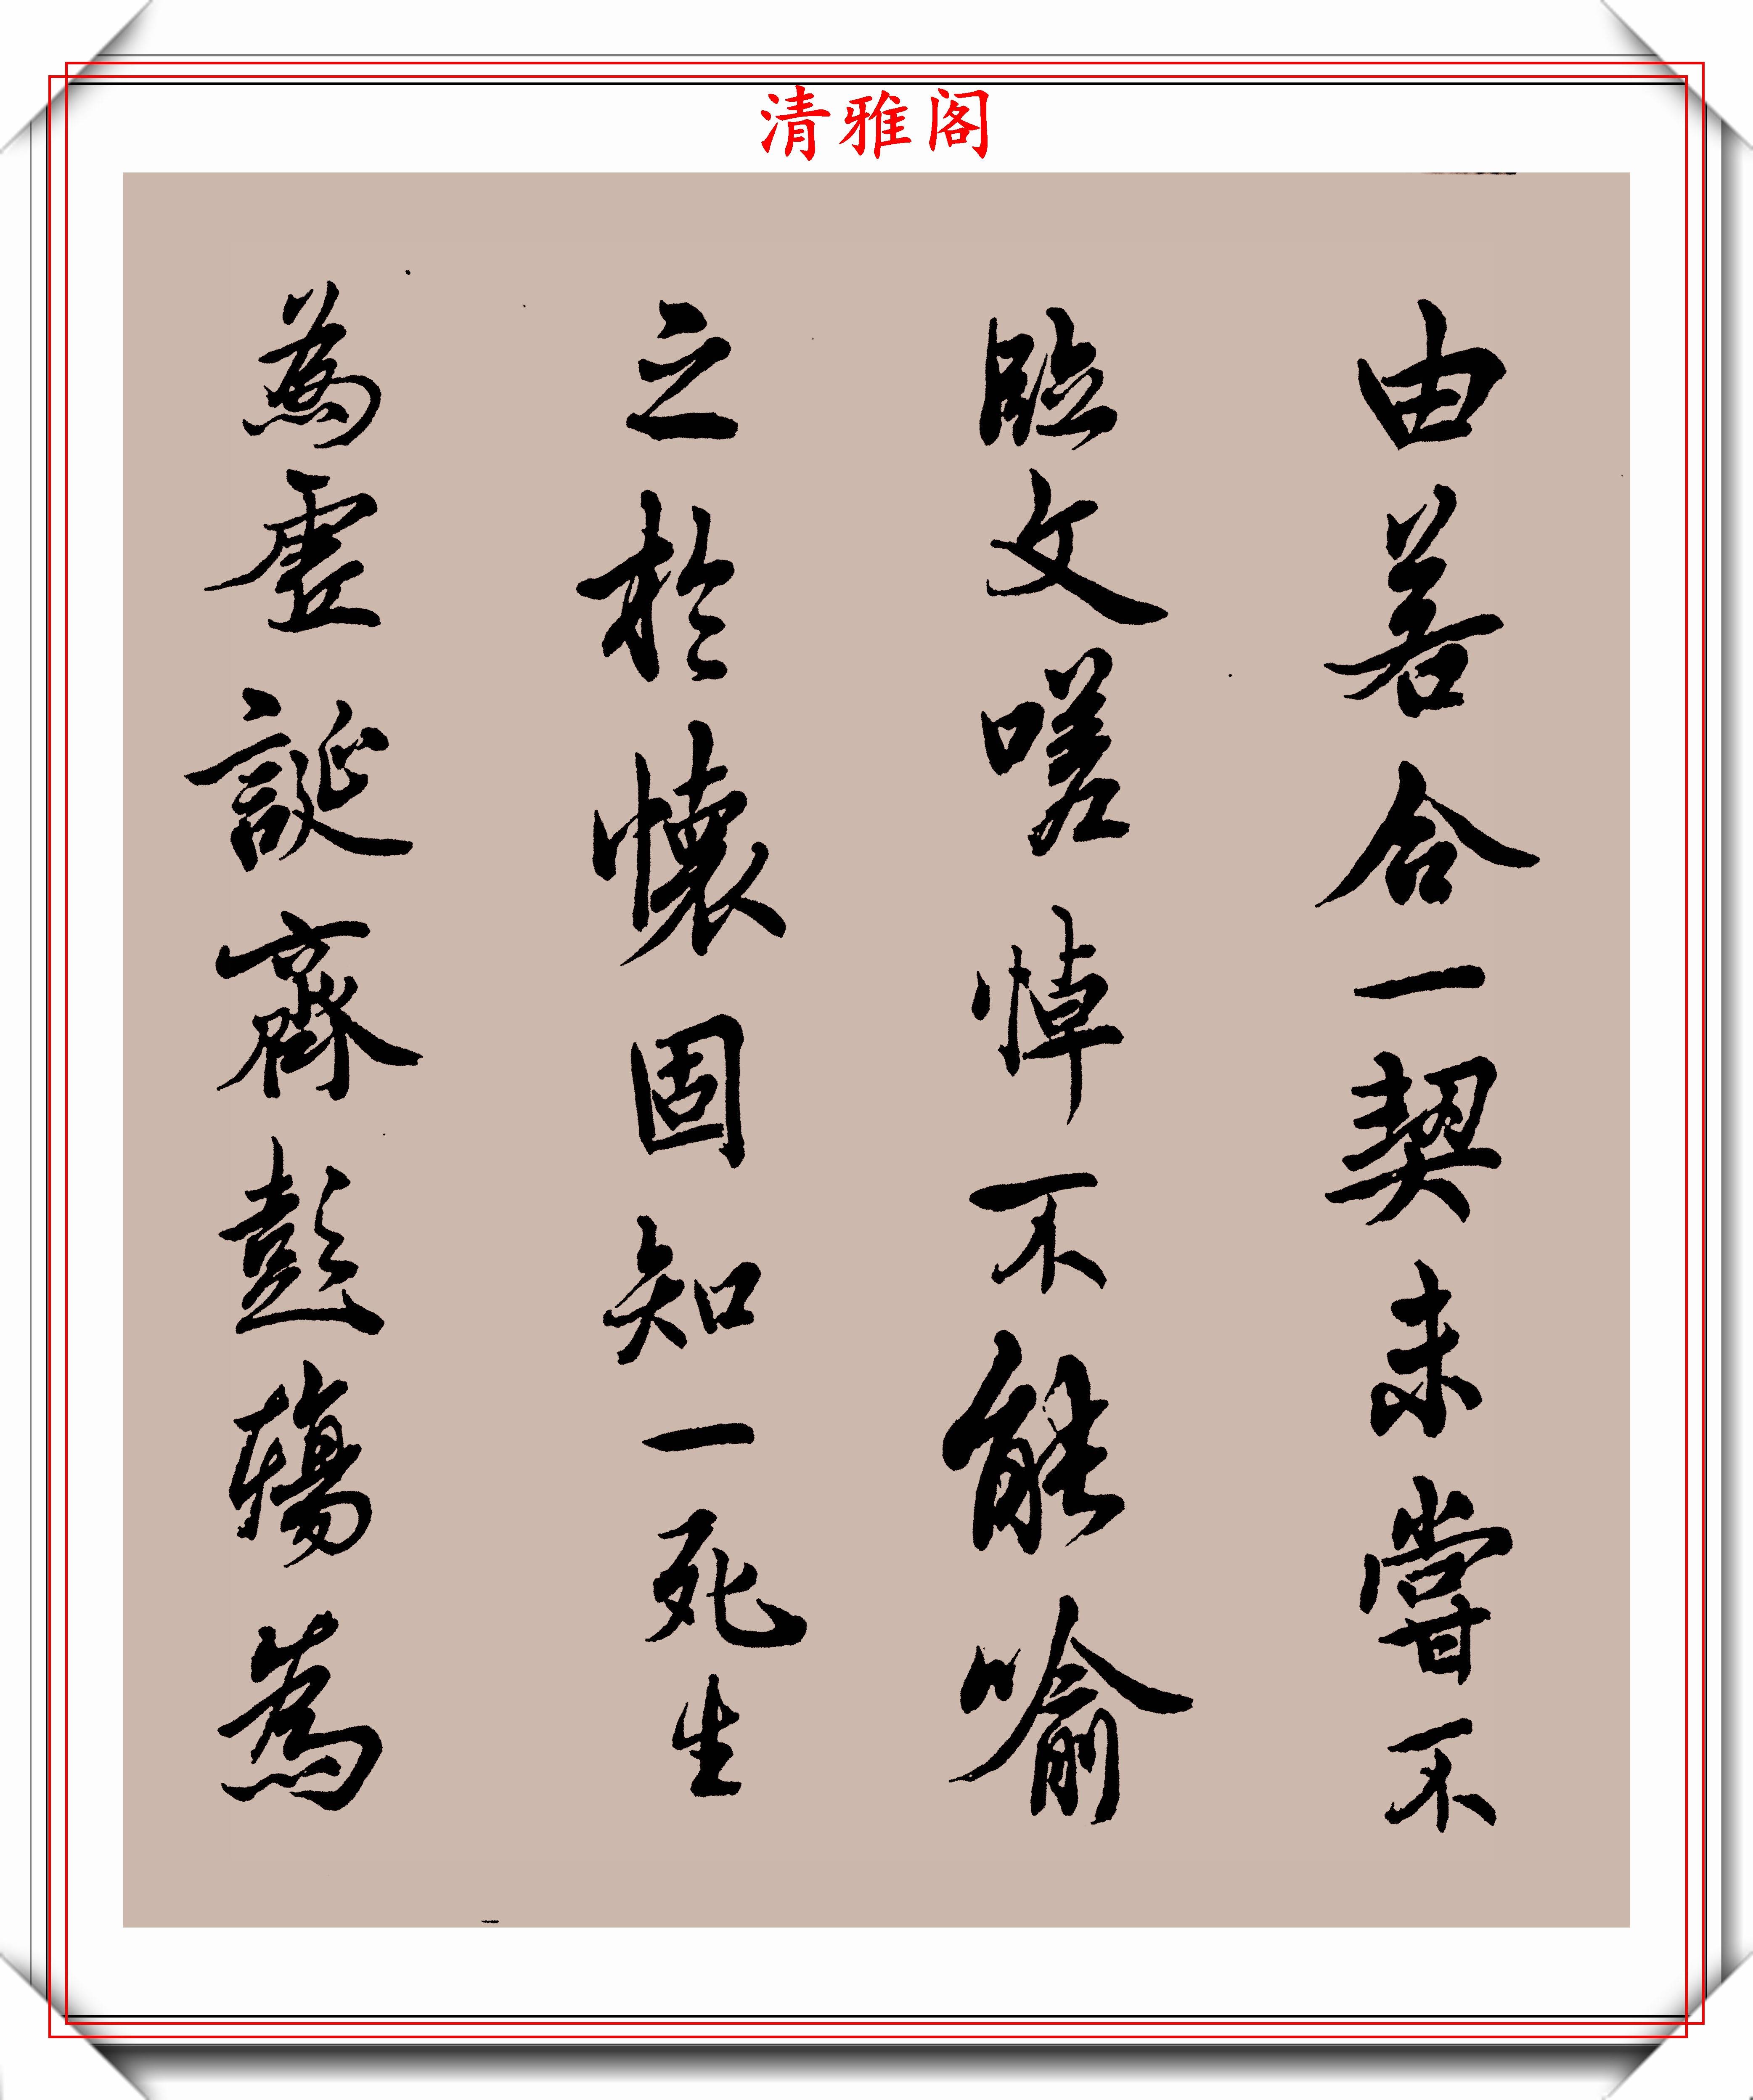 清雅阁
由若合一契未嘗不
臨文嗟悼不能喻
之於懷固知一死生
為虛誕齊彭殤為